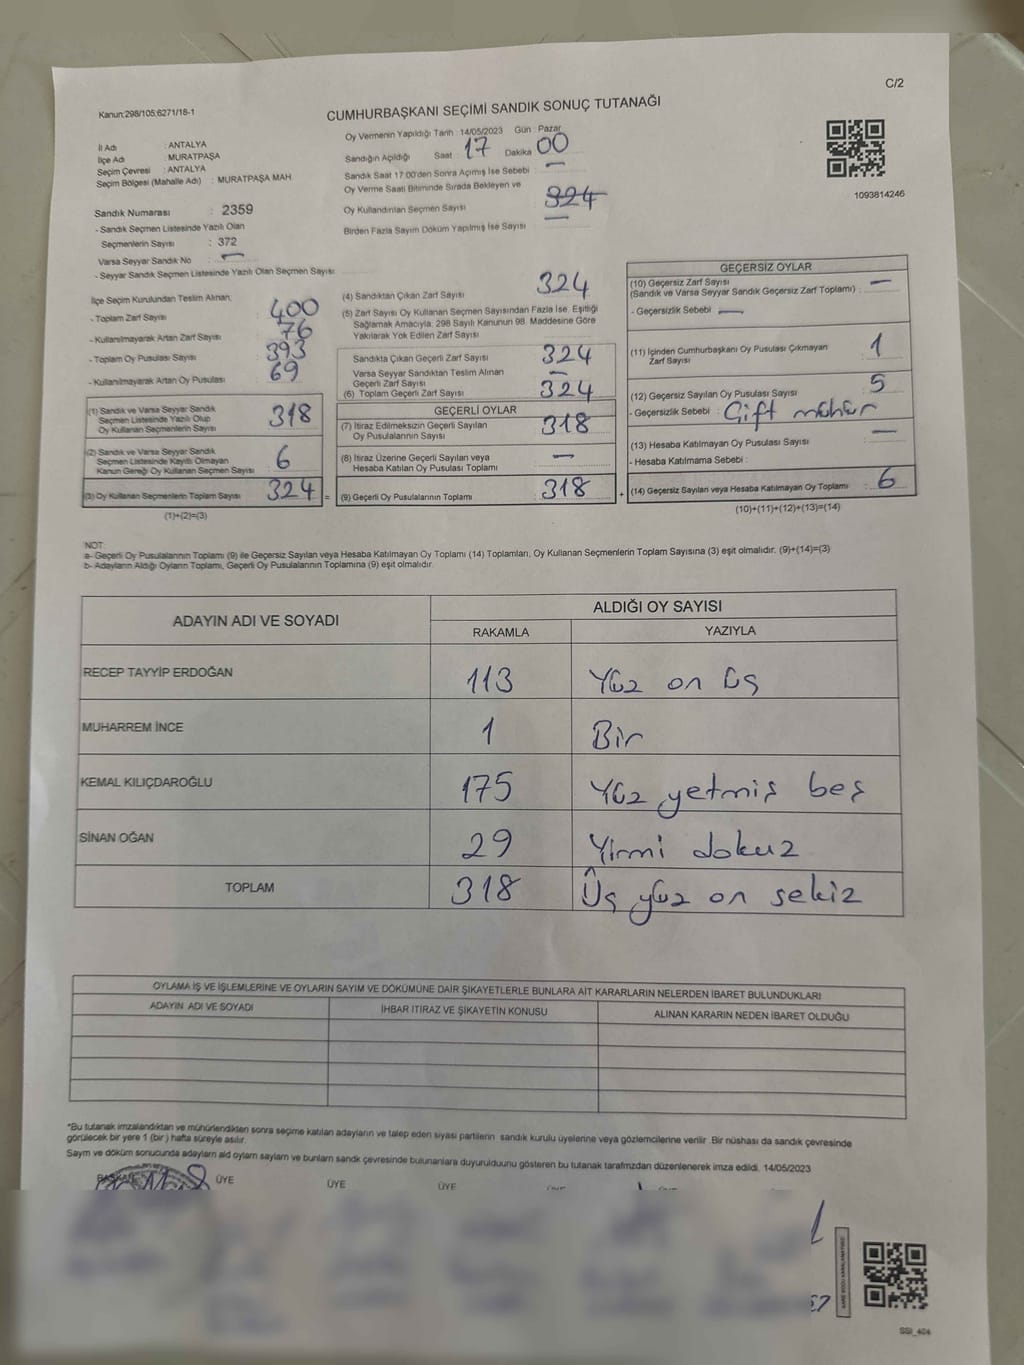 C/2
Kanun:298/105;6271/18-1
CUMHURBAŞKANI SEÇİMİ SANDIK SONUÇ TUTANAĞI
İl Adı : ANTALYA
İlçe Adı : MURATPAŞA
Seçim Çevresi : ANTALYA
Seçim Bölgesi (Mahalle Adı) : MURATPAŞA MAH.
Oy Vermenin Yapıldığı Tarih : 14/05/2023 Gün : Pazar
Sandığın Açıldığı Saat : 17 Dakika 00
Sandık Saat 17:00'den Sonra Açımış İse Sebebi : —
Oy Verme Saati Bitiminde Sırada Bekleyen ve
Oy Kullandırılan Seçmen Sayısı 324
Birden Fazla Sayım Döküm Yapılmış İse Sayısı —
1093814246
Sandık Numarası : 2359
- Sandık Seçmen Listesinde Yazılı Olan
Seçmenlerin Sayısı : 372
Varsa Seyyar Sandık No : —
- Seyyar Sandık Seçmen Listesinde Yazılı Olan Seçmen Sayısı
İlçe Seçim Kurulundan Teslim Alınan;
- Toplam Zarf Sayısı : 400
- Kullanılmayarak Artan Zarf Sayısı : 76
- Toplam Oy Pusulası Sayısı : 393
- Kullanılmayarak Artan Oy Pusulası : 69
(1) Sandık ve Varsa Seyyar Sandık
Seçmen Listesinde Yazılı Olup
Oy Kullanan Seçmenlerin Sayısı : 318
(2) Sandık ve Varsa Seyyar Sandık
Seçmen Listesinde Kayıtlı Olmayan
Kanun Gereği Oy Kullanan Seçmen Sayısı : 6
(3) Oy Kullanan Seçmenlerin Toplam Sayısı : 324 =
(1)+(2)=(3)
(4) Sandıktan Çıkan Zarf Sayısı 324
(5) Zarf Sayısı Oy Kullanan Seçmen Sayısından Fazla İse, Eşitliği
Sağlamak Amacıyla, 298 Sayılı Kanunun 98. Maddesine Göre
Yakılarak Yok Edilen Zarf Sayısı
Sandıkta Çıkan Geçerli Zarf Sayısı 324
Varsa Seyyar Sandıktan Teslim Alınan
Geçerli Zarf Sayısı —
(6) Toplam Geçerli Zarf Sayısı 324
GEÇERLİ OYLAR
(7) İtiraz Edilmeksizin Geçerli Sayılan
Oy Pusulasının Sayısı 318
(8) İtiraz Üzerine Geçerli Sayılan veya
Hesaba Katılan Oy Pusulası Toplamı —
(9) Geçerli Oy Pusulalarının Toplamı 318 +
GEÇERSİZ OYLAR
(10) Geçersiz Zarf Sayısı
(Sandık ve Varsa Seyyar Sandık Geçersiz Zarf Toplamı) : —
- Geçersizlik Sebebi : —
(11) İçinden Cumhurbaşkanı Oy Pusulası Çıkmayan
Zarf Sayısı : 1
(12) Geçersiz Sayılan Oy Pusulası Sayısı : 5
- Geçersizlik Sebebi : Çift mühür
(13) Hesaba Katılmayan Oy Pusulası Sayısı : —
- Hesaba Katılmama Sebebi :
(14) Geçersiz Sayılan veya Hesaba Katılmayan Oy Toplamı : 6
(10)+(11)+(12)+(13)=(14)
NOT:
a- Geçerli Oy Pusulalarının Toplamı (9) ile Geçersiz Sayılan veya Hesaba Katılmayan Oy Toplamı (14) Toplamları, Oy Kullanan Seçmenlerin Toplam Sayısına (3) eşit olmalıdır. (9)+(14)=(3)
b- Adayların Aldığı Oyların Toplamı, Geçerli Oy Pusulalarının Toplamına (9) eşit olmalıdır.
ADAYIN ADI VE SOYADI
ALDIĞI OY SAYISI
RAKAMLA YAZIYLA
RECEP TAYYİP ERDOĞAN 113 Yüz on üç
MUHARREM İNCE 1 Bir
KEMAL KILIÇDAROĞLU 175 Yüz yetmiş beş
SİNAN OĞAN 29 Yirmi dokuz
TOPLAM 318 Üç yüz on sekiz
OYLAMA İŞ VE İŞLEMLERİNE VE OYLARIN SAYIM VE DÖKÜMÜNE DAİR ŞİKAYETLERLE BUNLARA AİT KARARLARIN NELERDEN İBARET BULUNDUKLARI
ADAYIN ADI VE SOYADI İHBAR İTİRAZ VE ŞİKAYETİN KONUSU ALINAN KARARIN NEDEN İBARET OLDUĞU
*Bu tutanak imzalandıktan ve mühürlendikten sonra seçime katılan adayların ve talep eden siyasi partilerin sandık kurulu üyelerine veya gözlemcilerine verilir. Bir nüshası da sandık çevresinde
görülecek bir yere 1 (bir) hafta süreyle asılır.
Sayım ve döküm sonucunda adayların aldı oyların sayıları ve bunların sandık çevresinde bulunanlara duyurulduunu gösteren bu tutanak tarafımızdan düzenlenerek imza edildi. 14/05/2023
BAŞKAN ÜYE ÜYE ÜYE
SSI_404